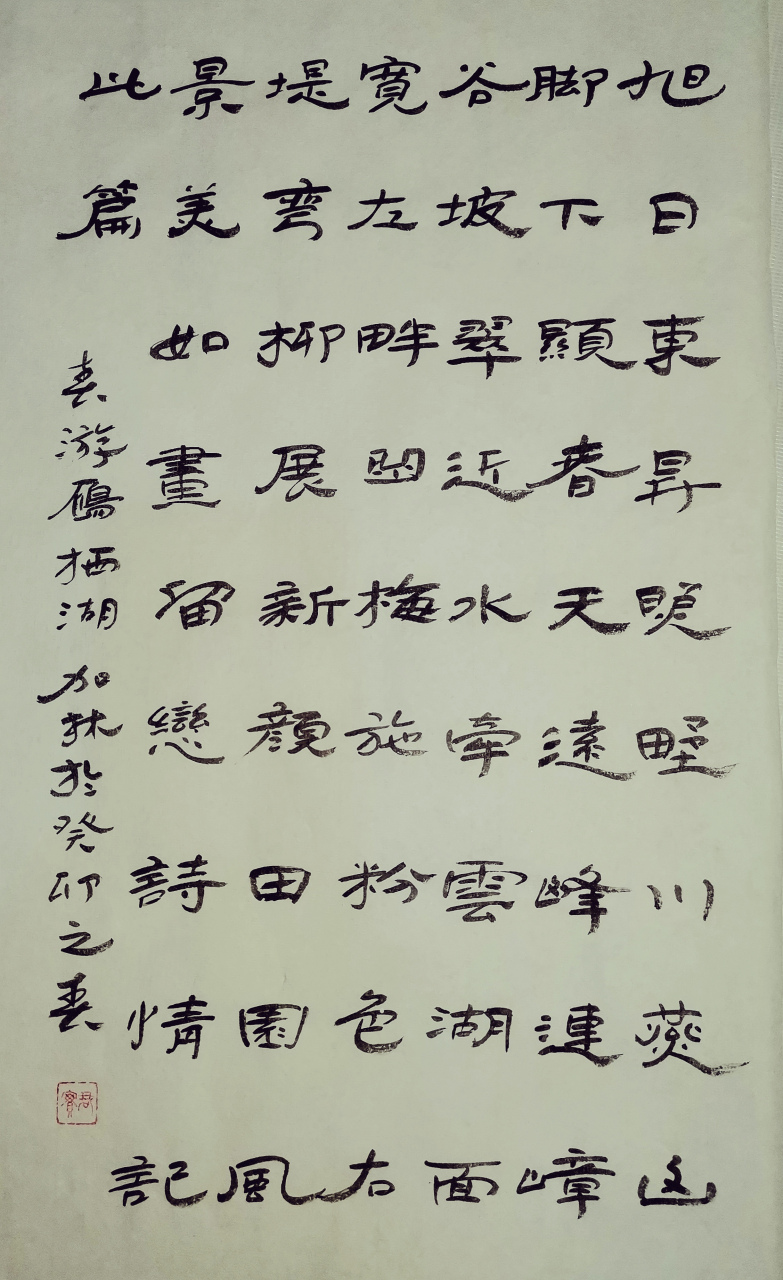 旭日東昇暎野川燕山
脚下顯春天遠峰連嶂
谷坡翠近水牽雲湖面
寬左畔凹梅施粉色右
堤彎柳展新顏田園風
景美如畫留戀詩情記
此篇
春游鴈栖湖加林於癸卯之春